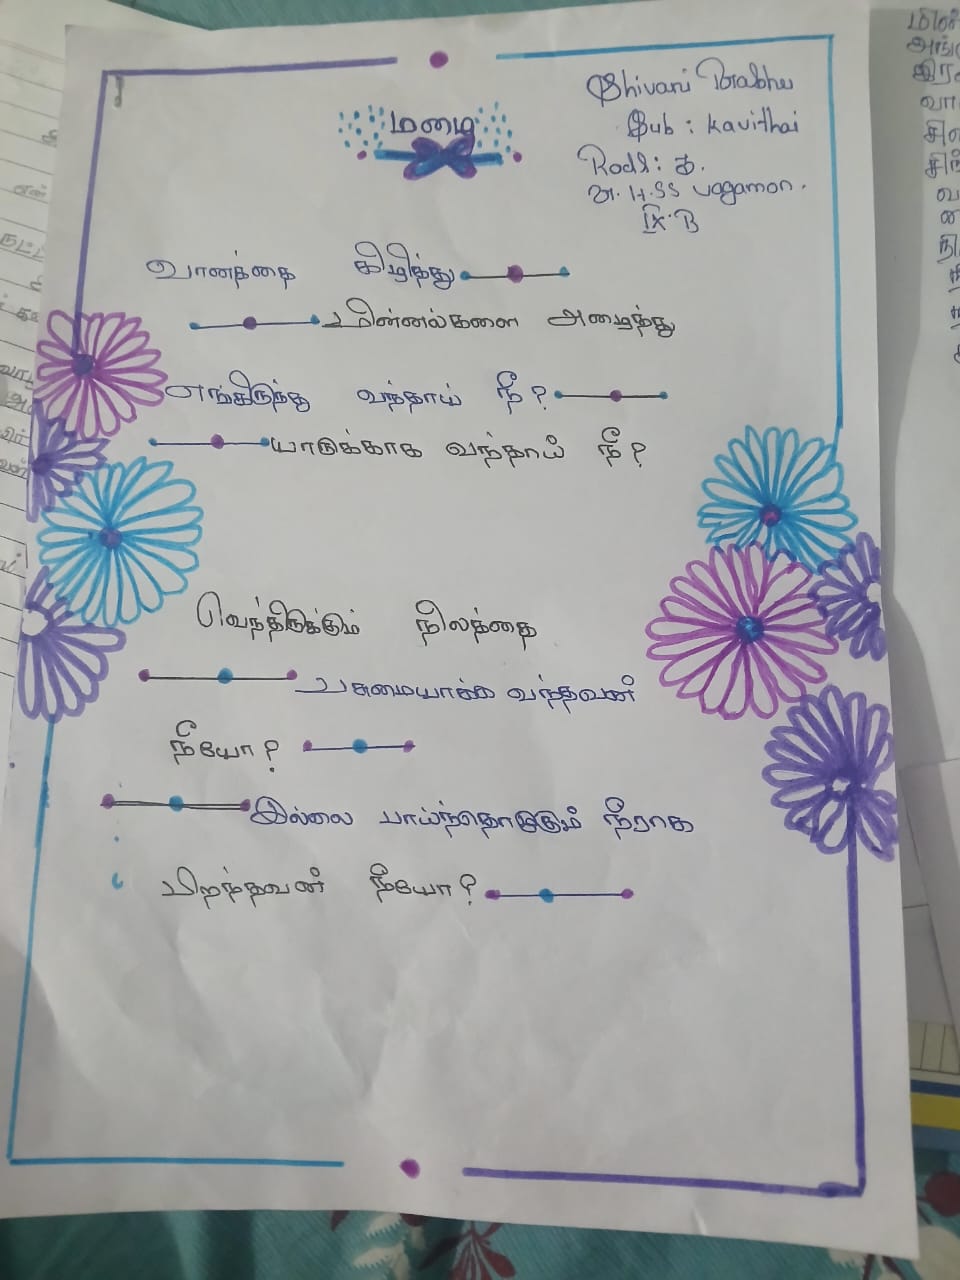 மழை
Shivani Prabhu
Sub : Kavithai
IX. B
வானத்தை கிழித்து
மின்னல்களை அழைத்து
எங்கிருந்து வந்தாய் நீ?
யாருக்காக வந்தாய் நீ?
வெந்திருக்கும் நிலத்தை
பசுமையாக்க வந்தவன்
நீயோ?
இல்லை பாய்ந்தொழுகும் நீராக
பிறந்தவன் நீயோ?